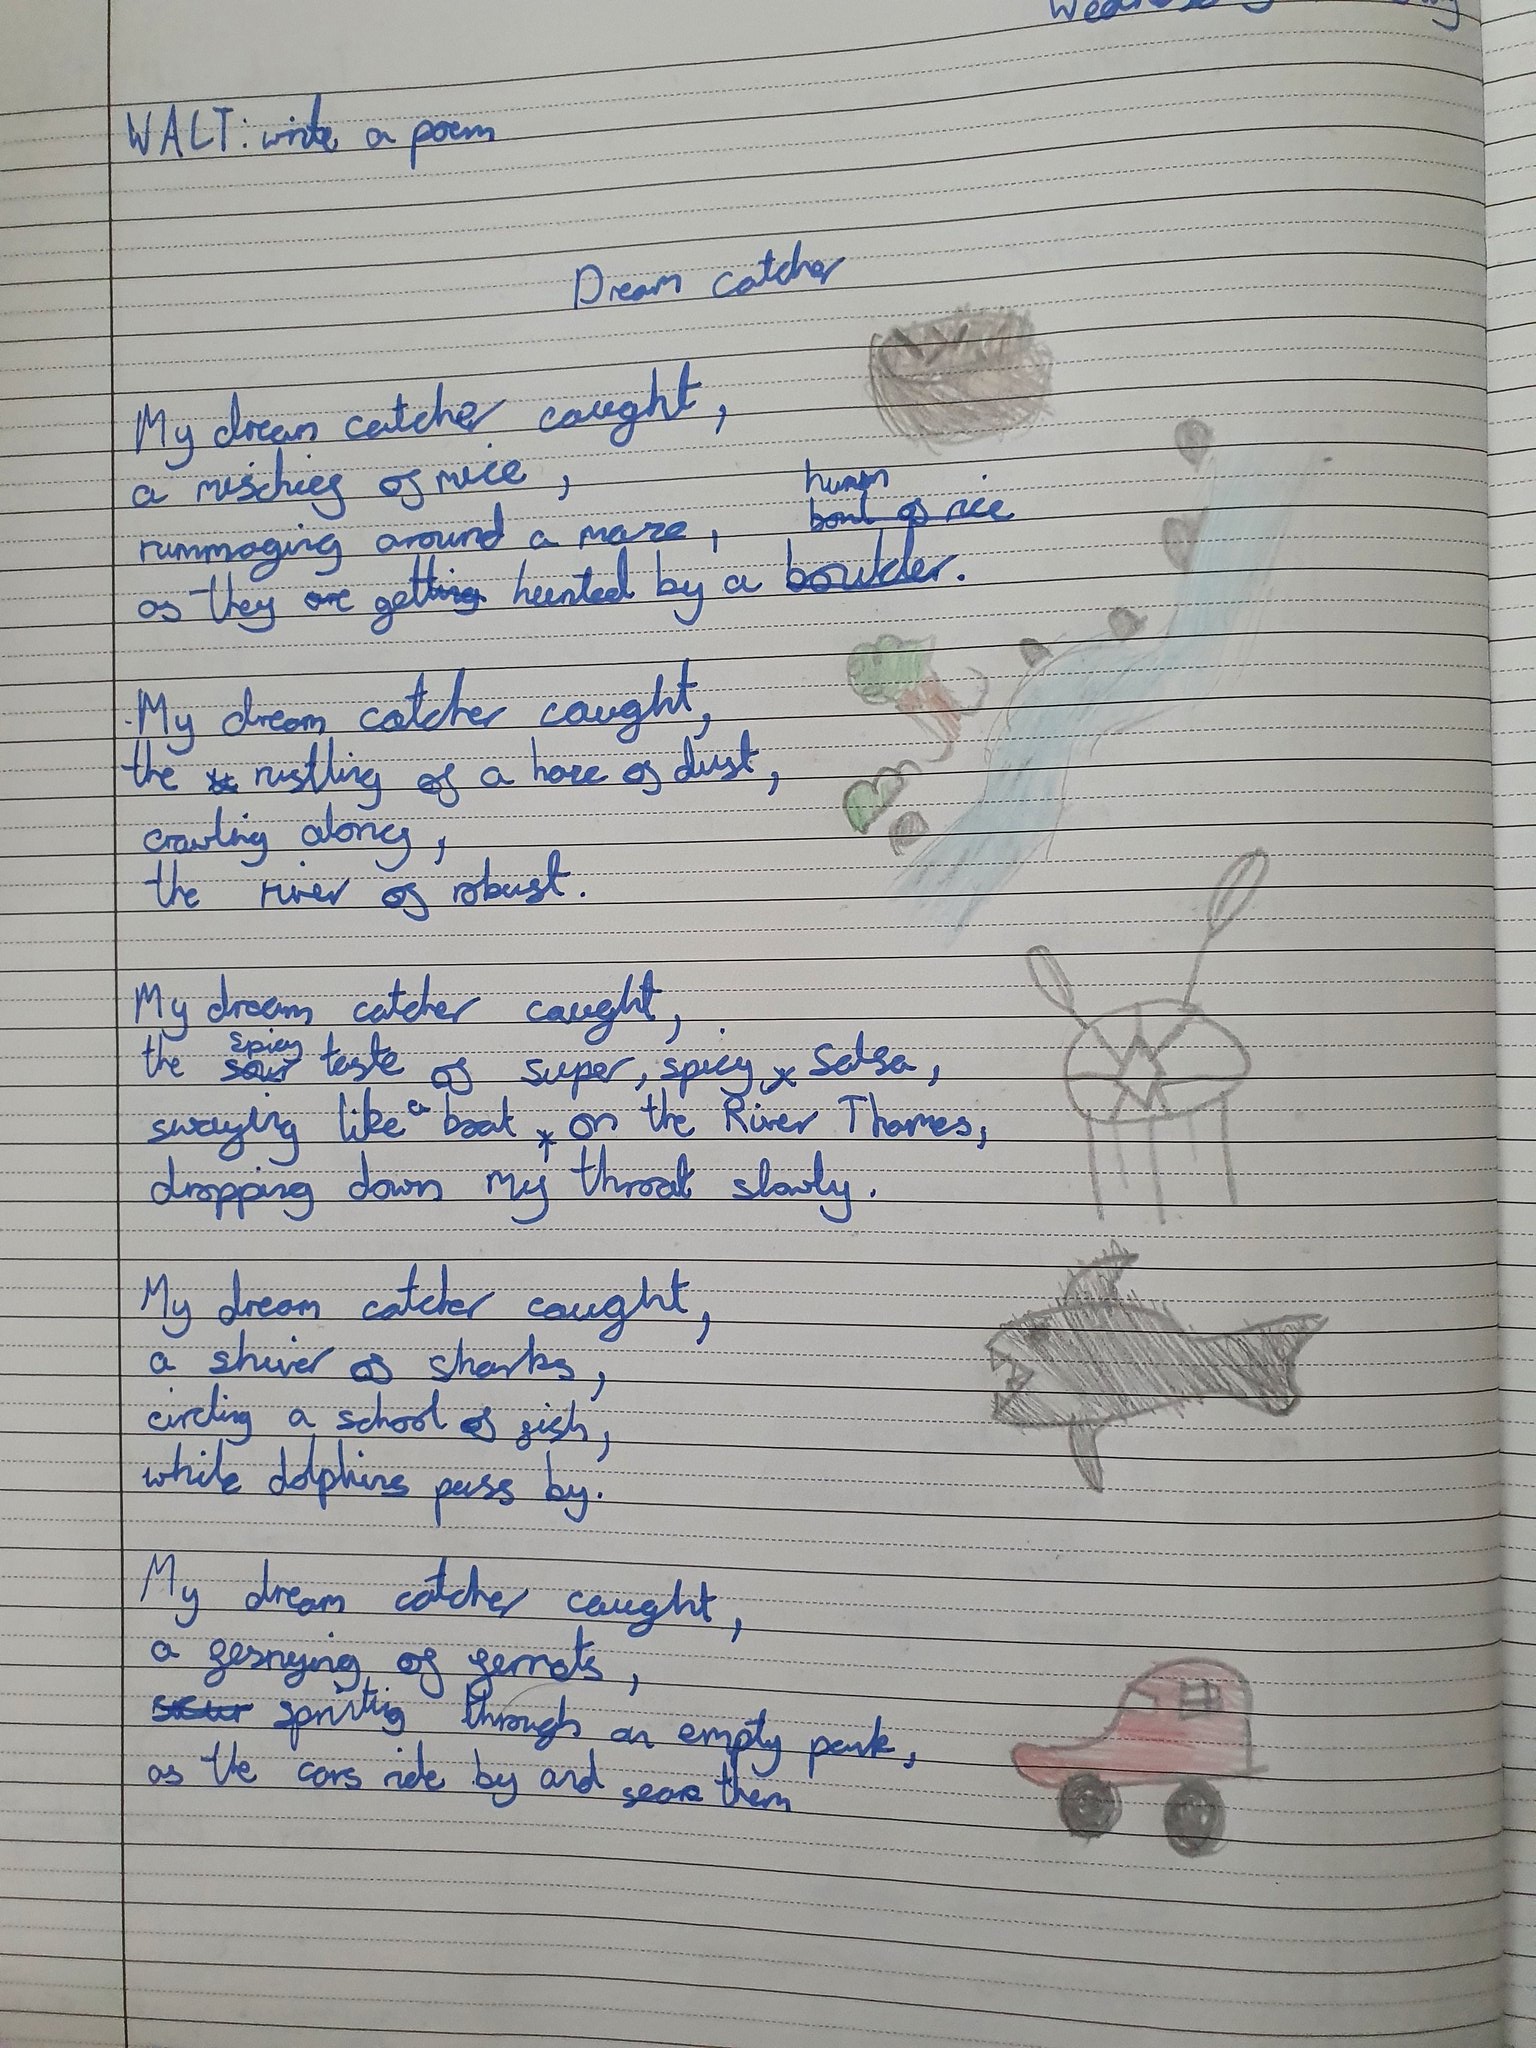 WALT: write a poem
Dream catcher
My dream catcher caught,
a mischief of mice,
rummaging around a maze,
human
bowl of rice
as they are getting hunted by a boulder.
My dream catcher caught,
the rustling of a haze of dust,
crawling along,
the river of robust.
My dream catcher caught,
the spicy sour taste of super, spicy salsa,
swaying like a boat, on the River Thames,
dropping down my throat slowly.
My dream catcher caught,
a shiver of sharks,
circling a school of fish,
while dolphins pass by.
My dream catcher caught,
a fesnying of ferrets,
through an empty park,
as the cars ride by and them